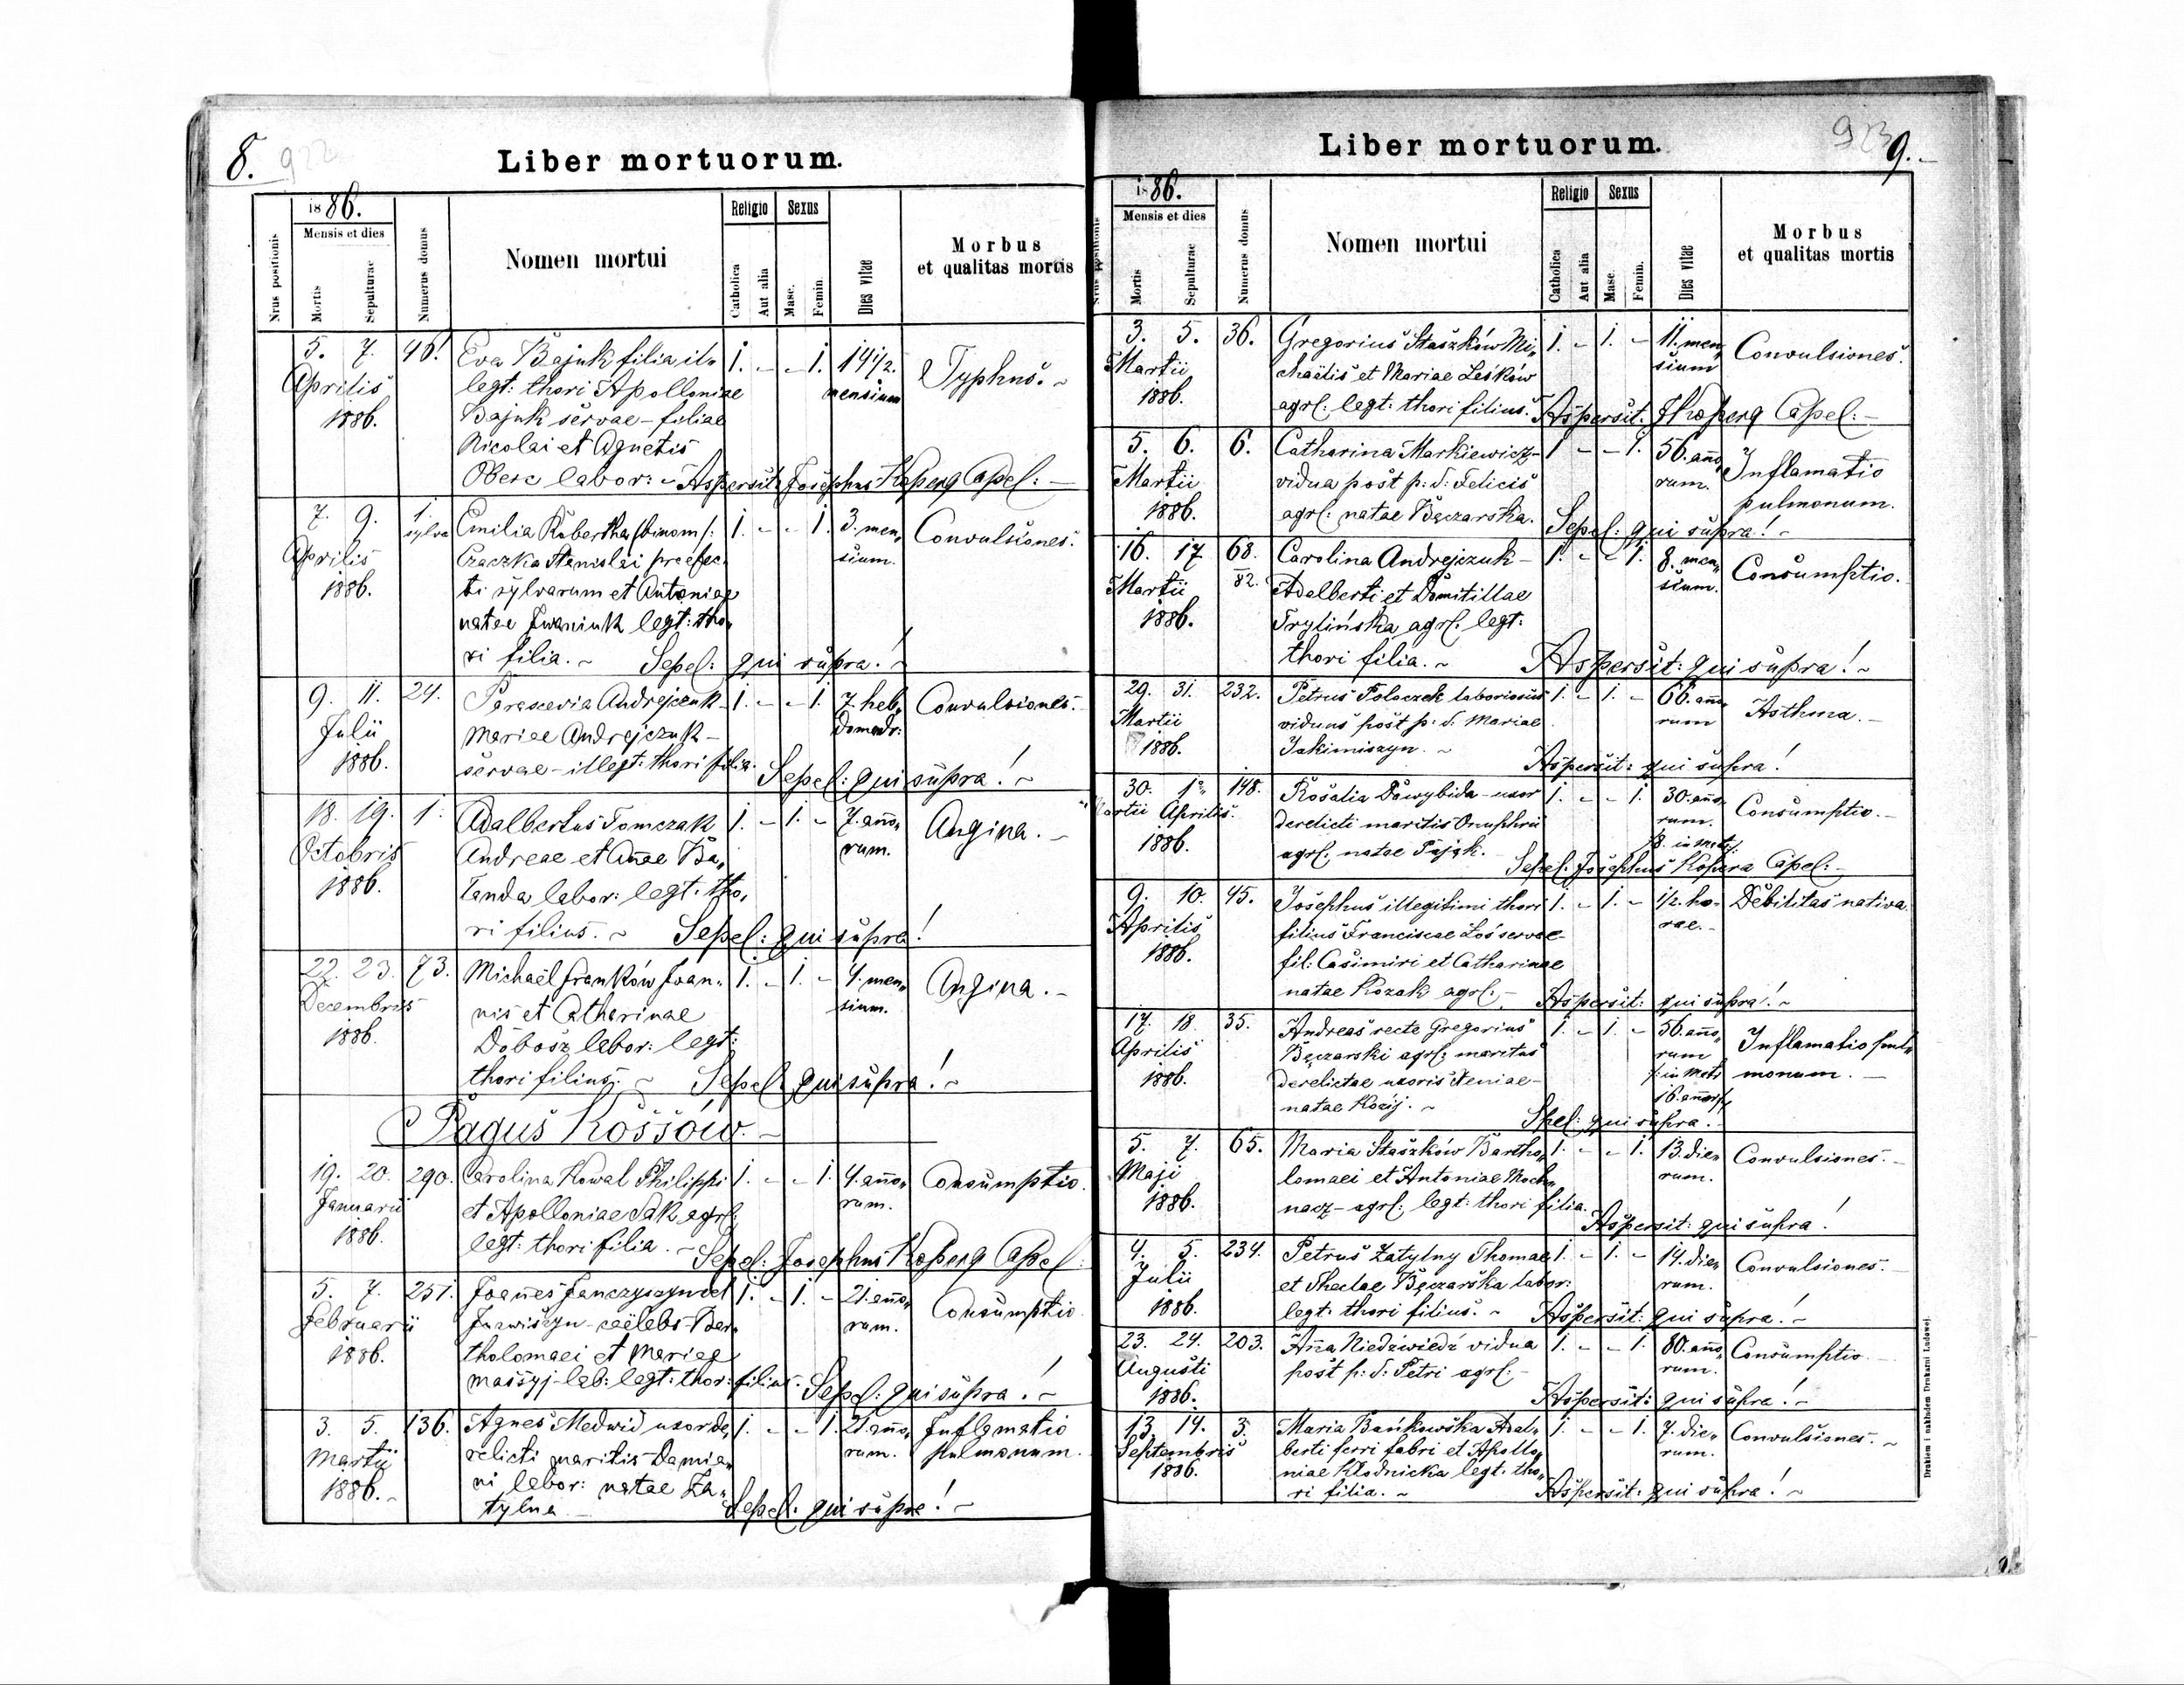 8. 922
Liber mortuorum.
1886.
Mensis et dies
Nrus positionis
Mortis
Sepulturae
Numerus domus
Nomen mortui
Religio
Catholica
Aut alia
Sexus
Masc.
Femin.
Dies vitae
Morbus
et qualitas mortis
5. 7. 46. Eva Bajuk filia il- 1. - - 1. 14 1/2. Typhus. -
Aprilis legt: thori Apolloniae mensium
1886. Bajuk servae - filiae
Nicolai et Agnetis
labor: - Aspersit: Josephus Kopera Capel: -
7. 9. 1. Emilia 1. - - 1. 3. men- Convulsiones.
sylva
Aprilis Czaczka Stanislai praefec- sium.
1886. ti sylvarum et Antoniae
natae Iwaniuk legt: tho-
ri filia. - Sepel: qui supra! -
9. 11. 24. Parascevia Andrejczuk 1. - - 1. 7. heb- Convulsiones. -
Julii Mariae Andrejczuk - domadr:
1886. servae - illegt: thori filia. Sepel: qui supra! -
18. 19. 1. Adalbertus Tomczak 1. - 1. - 7. anno- Angina. -
Octobris Andreae et Annae Ba- rum.
1886. landa labor: legt: tho-
ri filius. - Sepel: qui supra!
22. 23. 73. Michaël Franków Joan- 1. - 1. - 4. men- Angina. -
Decembris nis et Catharinae sium.
1886. Dobosz labor: legt:
thori filius. - Sepel: qui supra! -
Pagus Kossów. -
19. 20. 290. Carolina Kowal Philippi 1. - - 1. 4. anno- Consumptio.
Januarii et Apolloniae Sak agrl: rum.
1886. legt: thori filia. - Sepel: Josephus Kopera Capel:
5. 7. 251. Joannes Janczyszyn vel 1. - 1. - 21. anno- Consumptio.
Februarii caëlebs - Bar- rum.
1886. tholomaei et Mariae
lab: legt: thor: filius. Sepel: qui supra! -
3. 5. 136. Agnes Medwid uxor de- 1. - - 1. 21. anno- Inflamatio
Martii relicti maritis Damia- rum. pulmonum.
1886. - ni labor: natae Za-
tylna - Sepel: qui supra! -
923 9. -
Liber mortuorum.
1886.
Mensis et dies
Nrus positionis
Mortis
Sepulturae
Numerus domus
Nomen mortui
Religio
Catholica
Aut alia
Sexus
Masc.
Femin.
Dies vitae
Morbus
et qualitas mortis
3. 5. 36. Gregorius Staszków Mi- 1. - 1. - 11. men- Convulsiones.
Martii chaëlis et Mariae Leśków sium
1886. agrl: legt: thori filius. Aspersit: J Kopera Capel: -
5. 6. 6. Catharina Markiewicz - 1 - - 1. 56. anno- Inflamatio
Martii vidua post p: d: Felicis rum. pulmonum.
1886. agrl: natae Bęczarska. Sepel: qui supra! -
16. 17 68. Carolina Andrejczuk - 1. - - 1. 8. men- Consumptio.
Martii 82. Adalberti et Domitillae sium.
1886. Trylińska agrl: legt:
thori filia. - Aspersit: qui supra! -
29. 31. 232. Petrus Polaczek laboriosus 1. - 1. - 66. anno- Asthma. -
Martii viduus post p: d: Mariae rum
1886. Jakimiszyn. - Aspersit: qui supra!
30. 1. 148. Rosalia Dawybida - uxor 1. - - 1. 30. anno- Consumptio. -
Martii Aprilis. derelicti maritis Onuphrii rum.
1886. agrl: natae Pająk. - 8. in matr:
Sepel: Josephus Kopera Capel: -
9. 10. 45. Josephus illegitimi thori 1. - 1. - 1/2. ho- Debilitas nativa.
Aprilis filius Franciscae Łoś servae - rae. -
1886. fil: Casimiri et Catharinae
natae Kozak agrl: - Aspersit: qui supra! -
17. 18. 35. Andreas recte Gregorius 1. - 1. - 56. anno- Inflamatio pul-
Aprilis Bęczarski agrl: maritus rum monum. -
1886. derelictae uxoris Xeniae - in matr
natae Kozij. - 16. annor
Spel: qui supra. -
5. 7. 65. Maria Staszków Bartho- 1. - - 1. 13. die- Convulsiones. -
Maji lomaei et Antoniae Moch- rum.
1886. nacz - agrl: legt: thori filia. Aspersit: qui supra!
4. 5. 234. Petrus Zatylny Thomae 1. - 1. - 14. die- Convulsiones. -
Julii et Theclae Bęczarska labor: rum.
1886. legt: thori filius. - Aspersit: qui supra! -
23. 24. 203. Anna Niedźwiedź vidua 1. - - 1. 80. anno- Consumptio. -
Augusti post p: d: Petri agrl: - rum.
1886. Aspersit: qui supra! -
13. 14. 3. Maria Bańkowska Adal- 1. - - 1. 7. die- Convulsiones. -
Septembris berti ferri fabri et Apollo- rum.
1886. niae Kłodnicka legt. tho-
ri filia. - Aspersit: qui supra! -
Drukiem i nakładem Drukarni Ludowej.